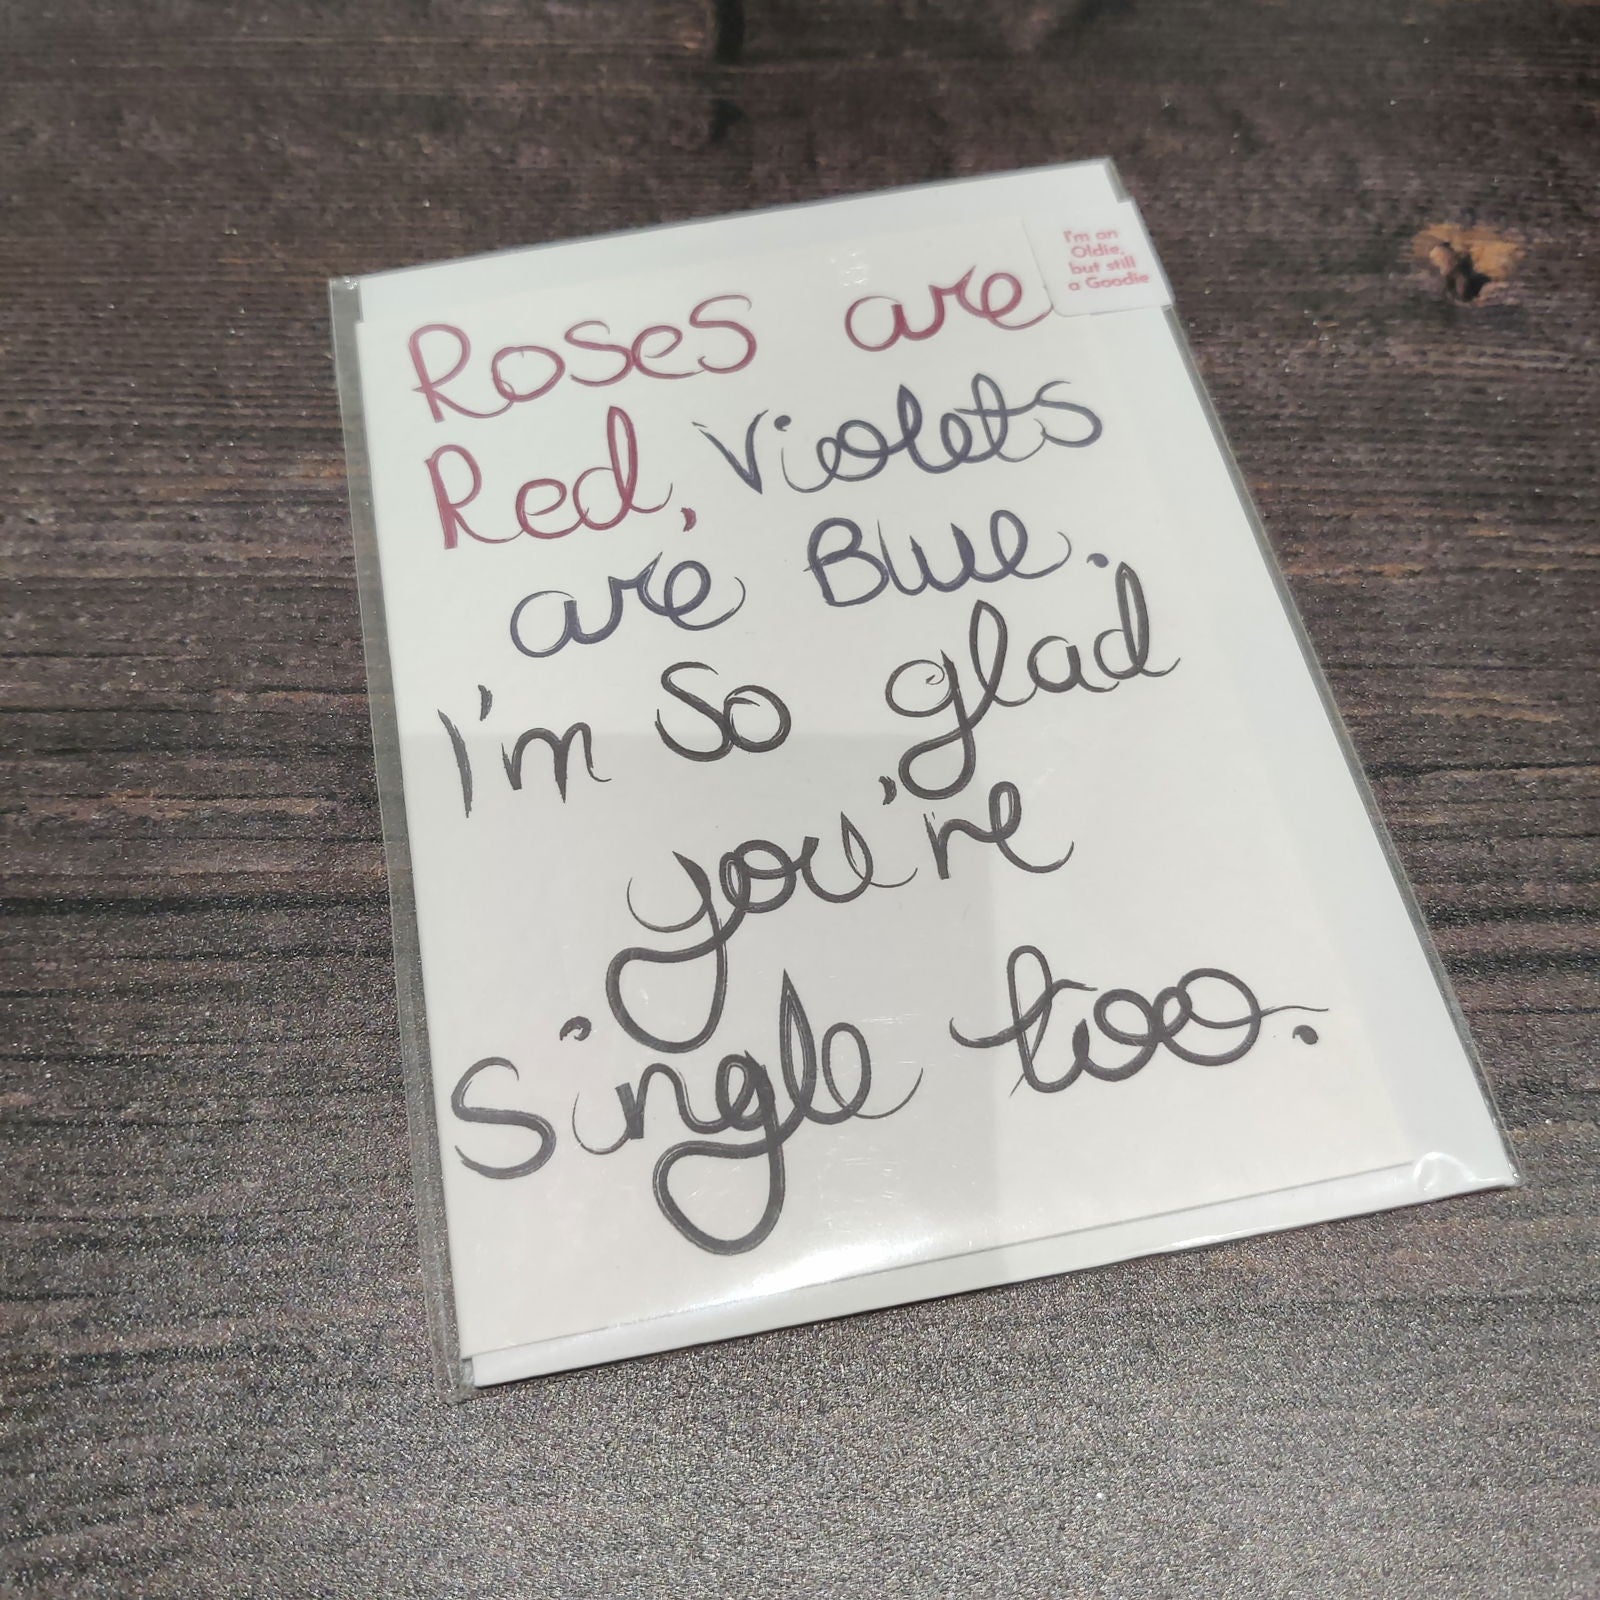 Roses are
Red, Violets
are Blue.
I'm so glad
you're
Single too.
I'm an
Oldie,
but still
a Goodie